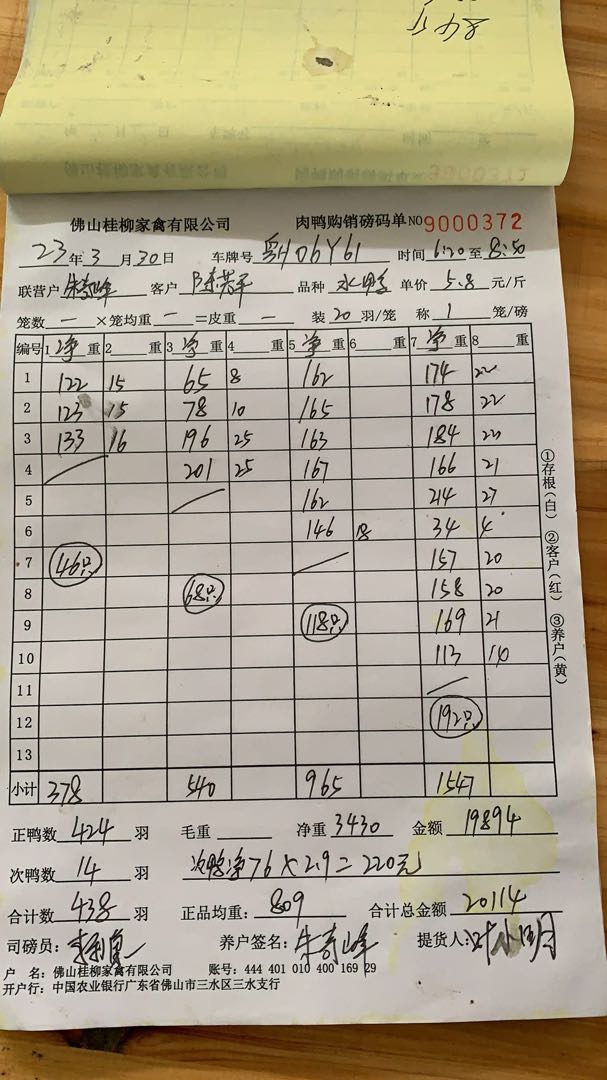 佛山桂柳家禽有限公司 肉鸭购销磅码单NO 9000372
23年3月30日 车牌号 粤H06Y61 时间 6:20至8:50
联营户 朱奇峰 客户 品种 水鸭 单价 5.8 元/斤
笼数 一 ×笼均重 一 =皮重 一 装 20 羽/笼 称 1 笼/磅
编号 1 净 重 2 重 3 净 重 4 重 5 净 重 6 重 7 净 重 8 重
1 122 15 65 8 162 174 22
2 123 15 78 10 165 178 22
3 133 16 196 25 163 184 23
4 201 25 167 166 21
5 162 214 27
6 146 18 34 4
7 46只 157 20
8 68只 158 20
9 118只 169 21
10 113 14
11
12 192只
13
小计 378 540 965 1547
①存根(白) ②客户(红) ③养户(黄)
正鸭数 424 羽 毛重 净重 3430 金额 19894
次鸭数 14 羽 次鸭净76×2.9=220元
合计数 438 羽 正品均重: 809 合计总金额 20114
司磅员: 养户签名: 朱奇峰 提货人: 叶小明
户 名: 佛山桂柳家禽有限公司 账号: 444 401 010 400 169 29
开户行: 中国农业银行广东省佛山市三水区三水支行